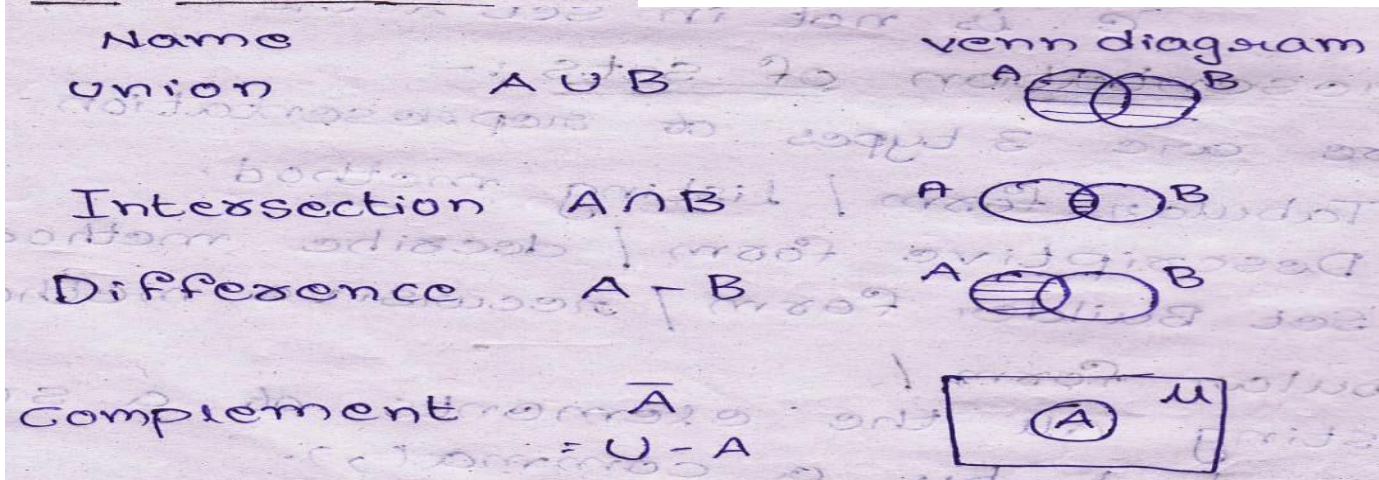 Name venn diagram
union A ∪ B A B
Intersection A ∩ B A B
Difference A - B A B
Complement Ā A μ
= U - A